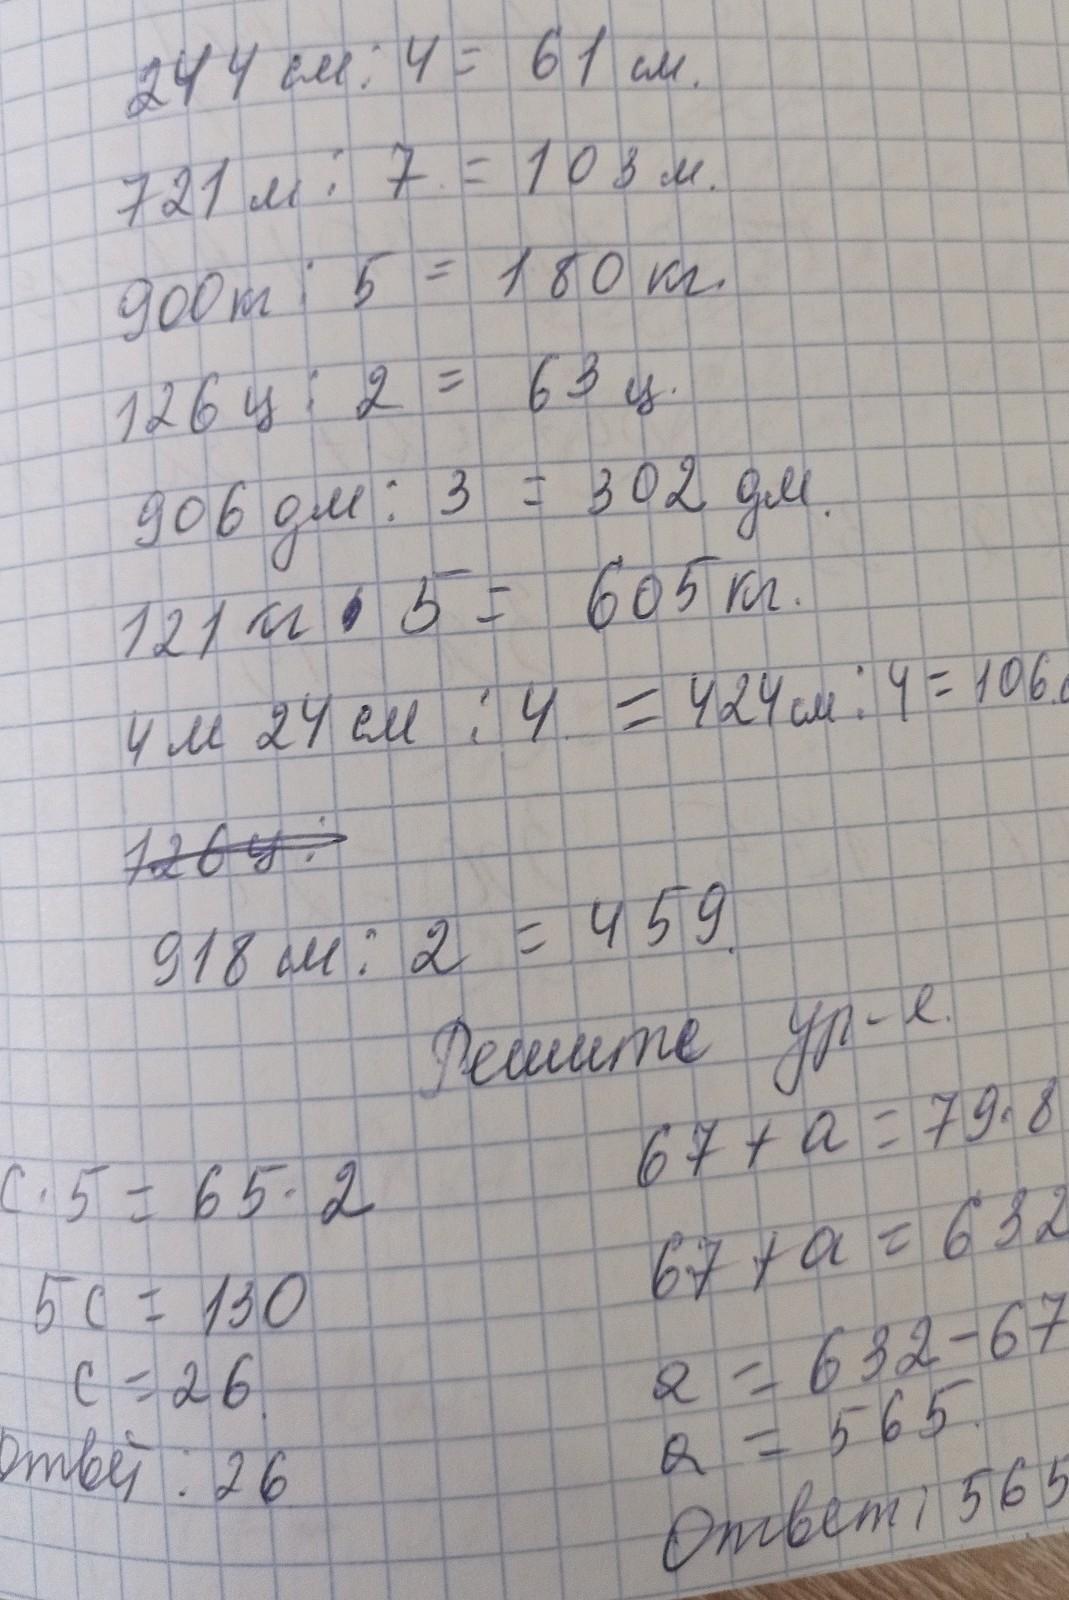 244 см : 4 = 61 см.
721 м : 7 = 103 м.
900 кг : 5 = 180 кг.
126 ц : 2 = 63 ц.
906 дм : 3 = 302 дм.
121 кг • 5 = 605 кг.
4 м 24 см : 4 = 424 см : 4 = 106 с
126 ц :
918 см : 2 = 459.
Решите ур-е.
с · 5 = 65 · 2
5с = 130
с = 26.
Ответ : 26
67 + а = 79 · 8
67 + а = 632
а = 632 - 67
а = 565.
Ответ : 565